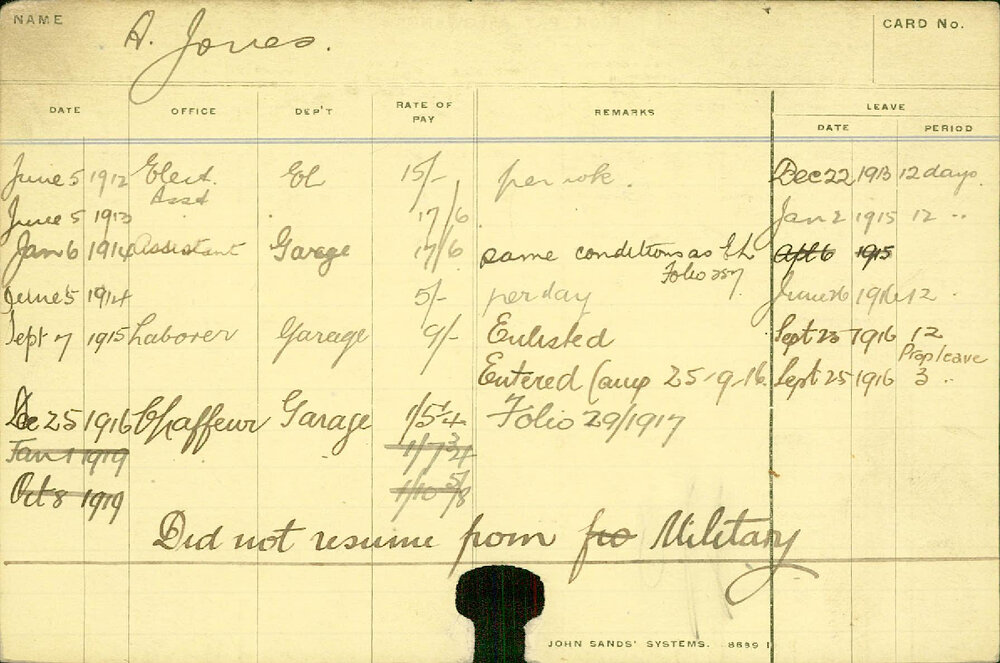 NAME A. Jones. CARD No.
DATE OFFICE DEP'T RATE OF PAY REMARKS LEAVE
DATE PERIOD
June 5 1912 Elect. El 15/- per wk. Dec 22 1913 12 days.
Asst
June 5 1913 17/6 Jan 2 1915 12 "
Jan 6 1914 Assistant Garage 17/6 same conditions as El. 1915
Folio 257
June 5 1914 5/- per day June 26 1916 12 "
Sept 7 1915 Laborer Garage 9/- Enlisted Sept 23 1916 12
Prop leave
Entered Camp 25-9-16. Sept 25 1916 3 "
Dec 25 1916 Chaffeur Garage 1/5¼ Folio 29/1917
Jan 1 1919 1/7¾
Oct 8 1919 1/10⅝
Did not resume from fro Military
JOHN SANDS' SYSTEMS. 8689 1